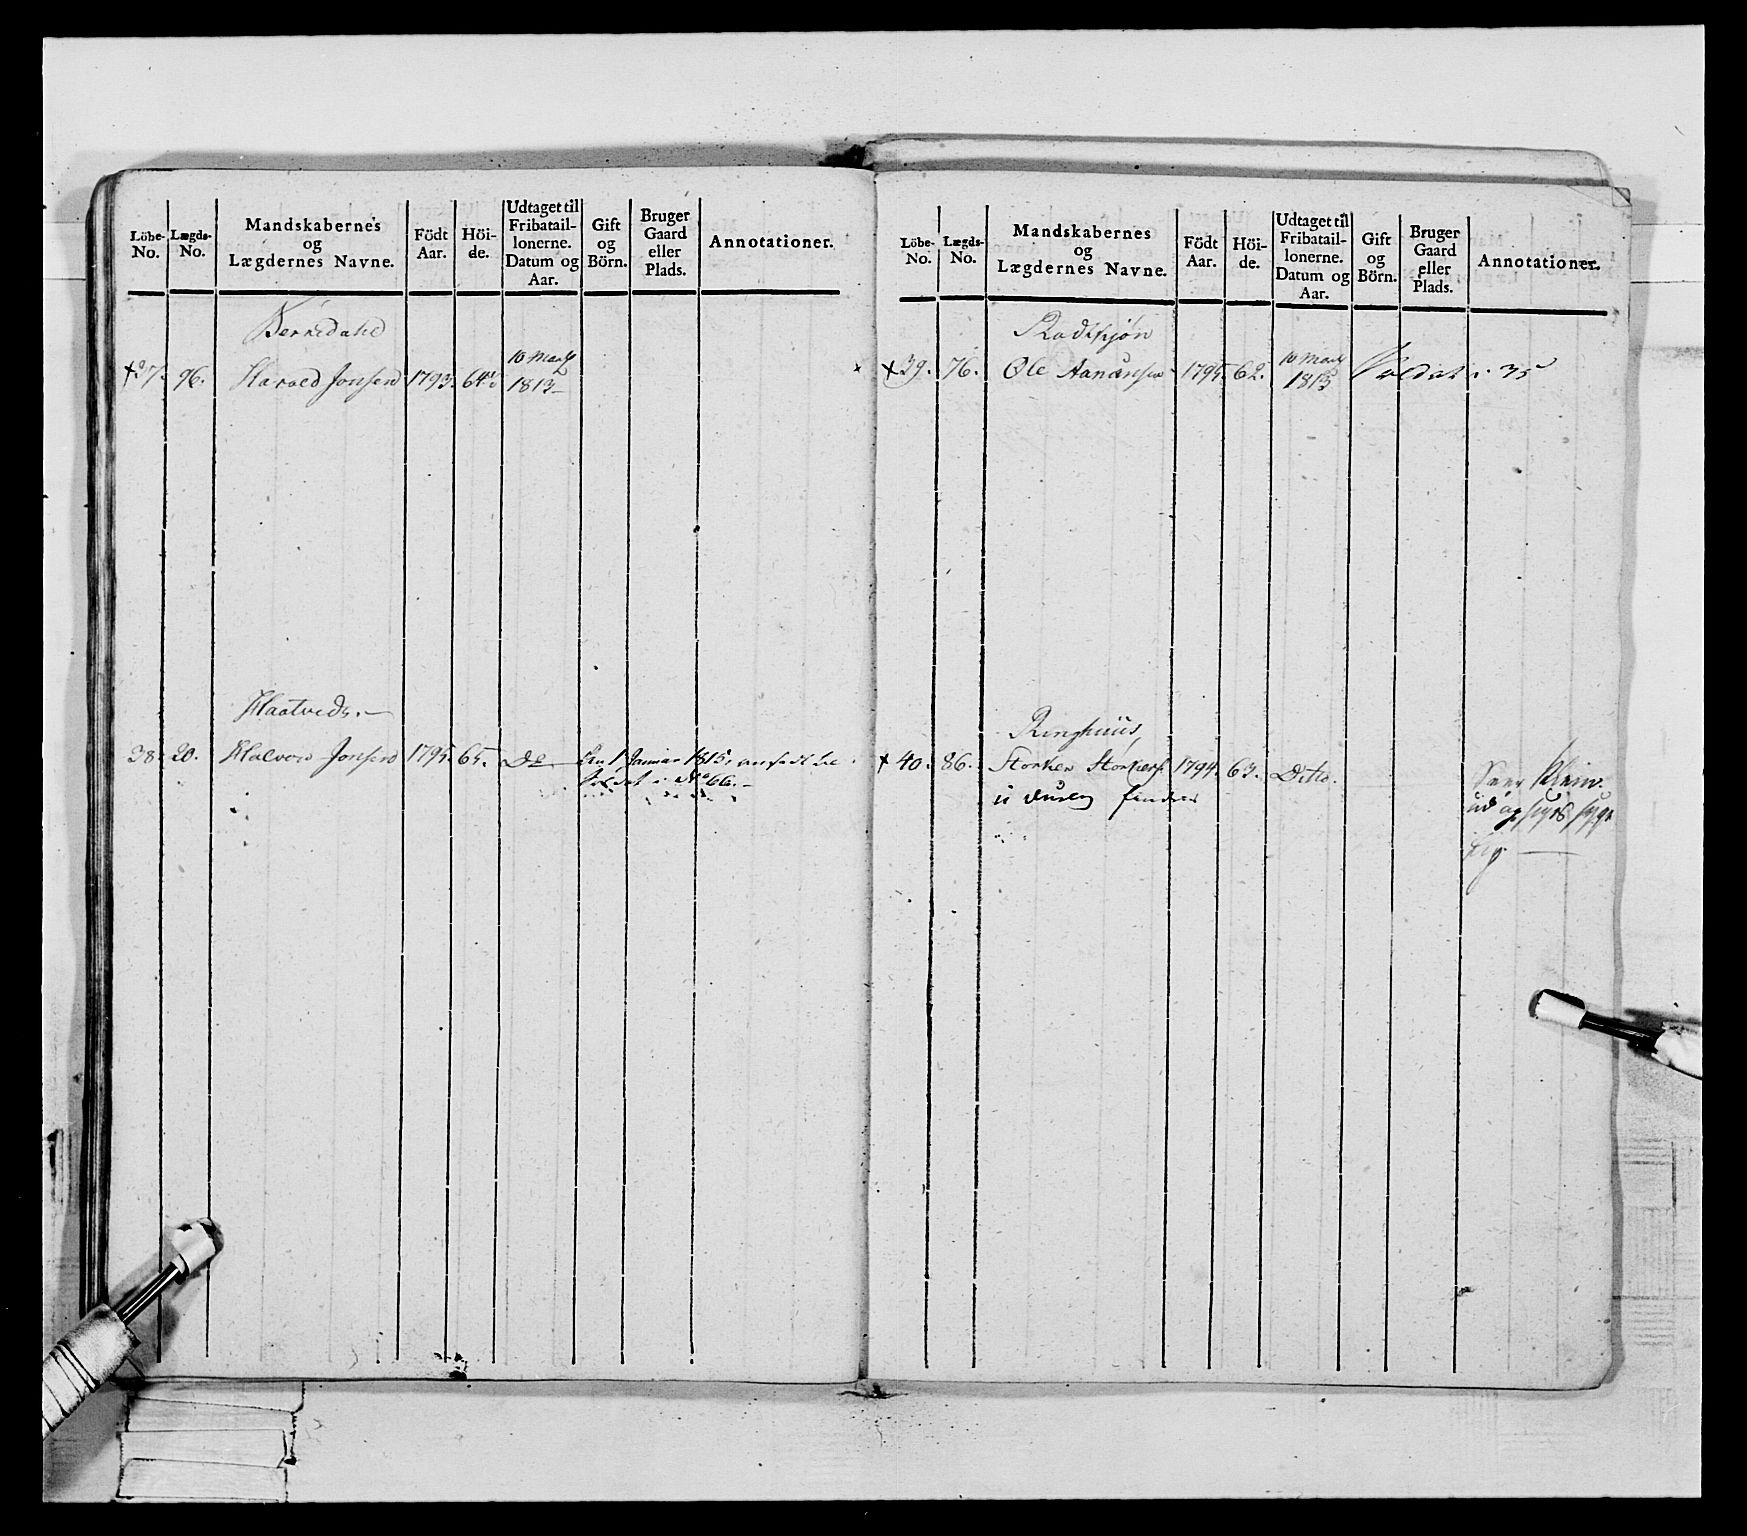 Löbe-No. Lægds-No. Mandskabernes og Lægdernes Navne. Födt Aar. Höi-de. Udtaget til Fribatail-lonerne. Datum og Aar. Gift og Börn. Bruger Gaard eller Plads. Annotationer.
10 Marts
37. 96. Harald Jonsen 1793. 64½ 1813
Haatveds.
38. 20. Halvor Jonsen 1795. 65. Do Den 1 Januar 1815, ansadt som
Soldat i No 66.
Löbe-No. Lægds-No. Mandskabernes og Lægdernes Navne. Födt Aar. Höi-de. Udtaget til Fribatail-lonerne. Datum og Aar. Gift og Börn. Bruger Gaard eller Plads. Annotationer.
10 Marts
39. 76. Ole Aanunsen 1795. 62. 1813 Soldat i 35
Ringhuus,
40. 86. Storker 1794. 63. Ditto.